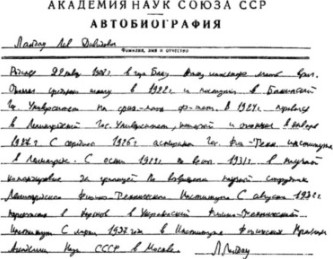 АКАДЕМИЯ НАУК СОЮЗА ССР
АВТОБИОГРАФИЯ
Ландау Лев Давидович
Фамилия, имя и отчество
Родился 22 янв. 1908 г. в гор. Баку
среднюю школу в 1922 г. и поступил в Бакинский
Гос. Университет на физ-мат. ф-тет. В 1924 г. перевелся
в Ленинградский Гос. Университет, который и окончил в январе
1927 г. С 1926 г. аспирант Гос. Физ-Техн. института
в Ленинграде. С 1929 г. по 1931 г. в научной
командировке за границей. По возвращении научный сотрудник
Ленинградского Физико-Технического Института. С августа 1932 г.
в Харьков в Украинский Физико-Технический
Институт. С 1937 года в Институте Физических Проблем
Академии Наук СССР в Москве. Л Ландау